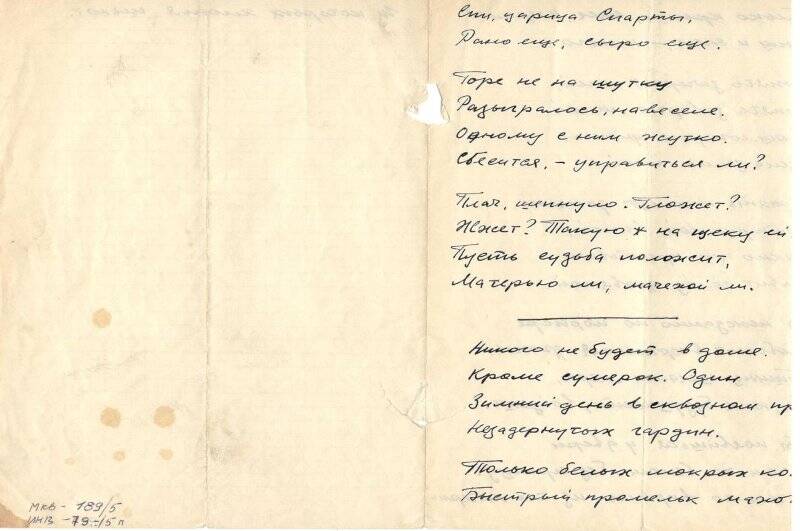 Спи, царица Спарты,
Рано еще, сыро еще.
Горе не на шутку
Разыгралось, навеселе.
Одному с ним жутко.
Сбесится, – управиться ли?
Плач, шепнуло. Гложет?
Жжет? Такую ж на щеку ей
Пусть судьба положит,
Матерью ли, мачехой ли.
Никого не будет в доме.
Кроме сумерок. Один
Зимний день в сквозном пр
Незадернутых гардин.
Только белых мокрых ко
Быстрый промельк махо
МКВ - 189/5
ИНВ - 79 - /5 п